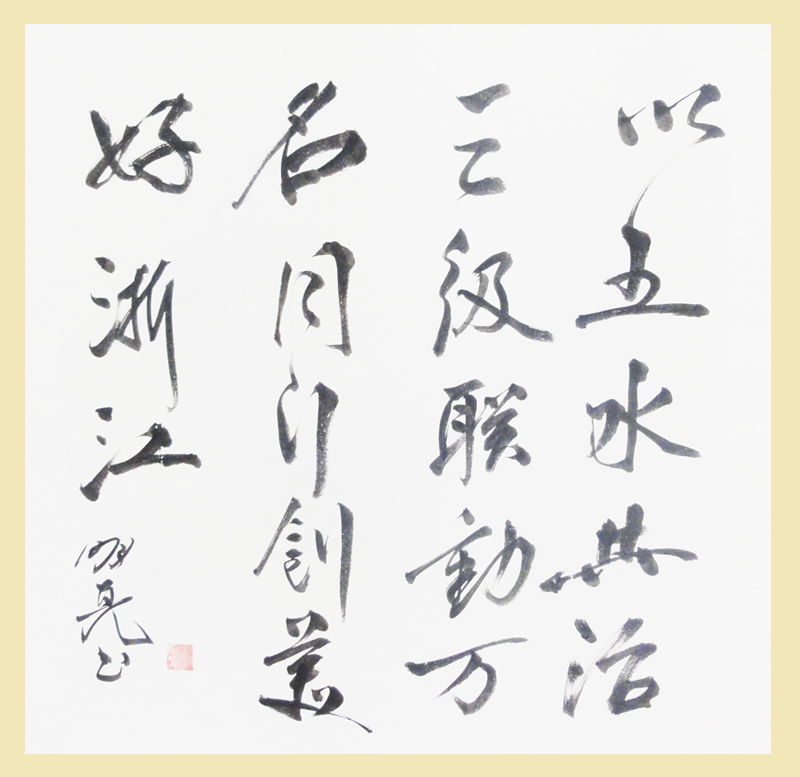 以五水共治
三级联動万
名同行創美
好浙江
明亮书